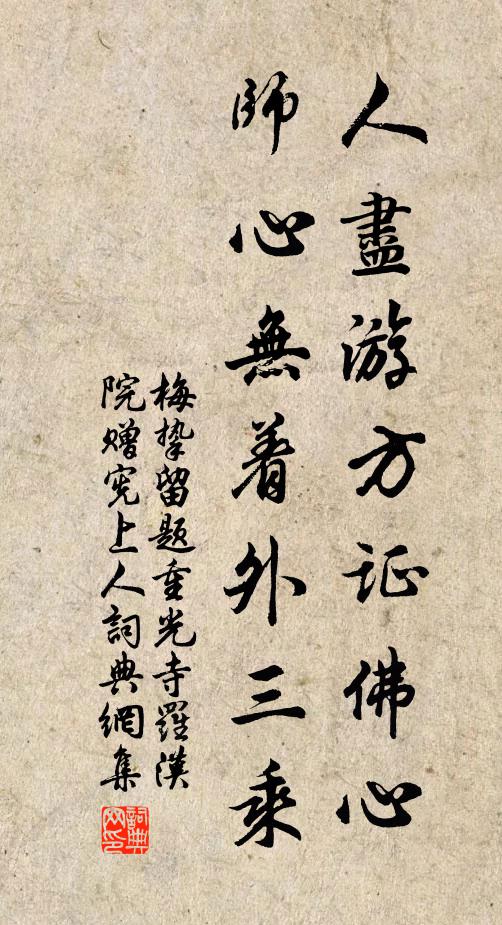 人盡游方证佛心
師心無着外三乘
梅挚留题重光寺羅漢
院赠宪上人詞典網集
詞典网印